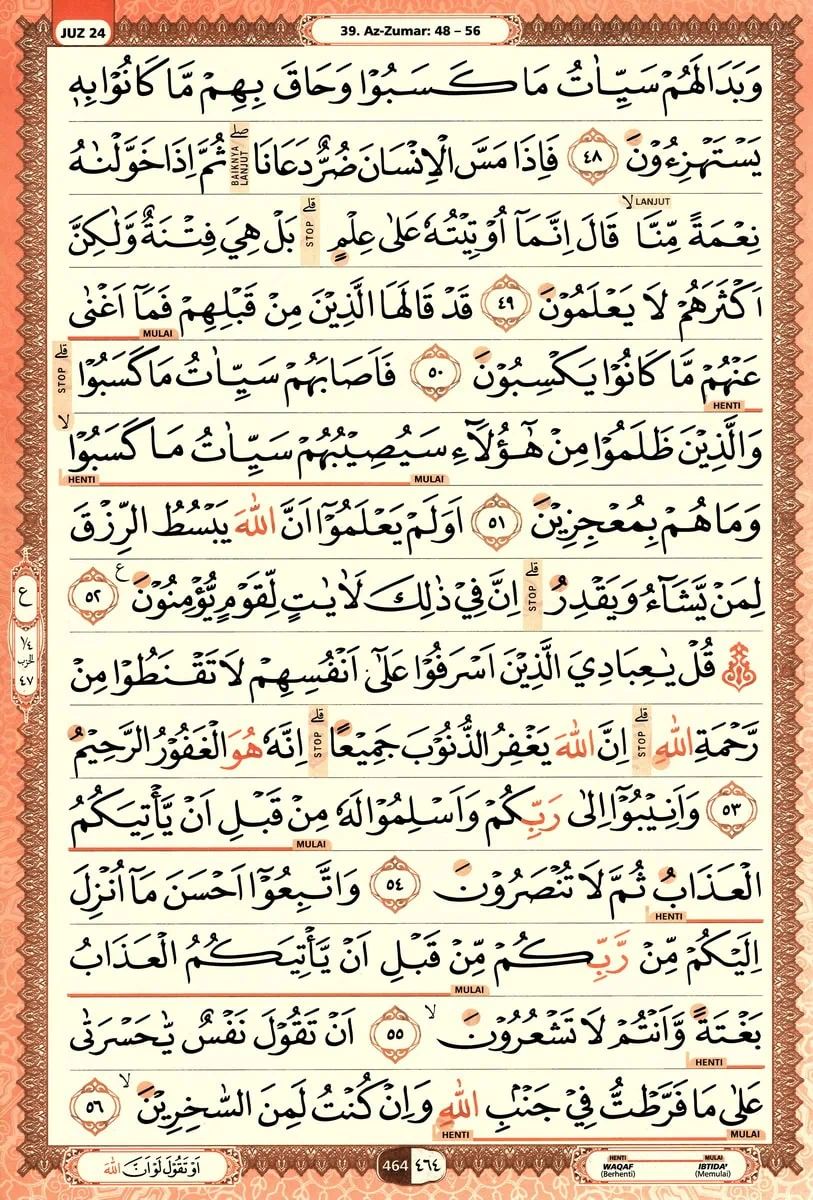 JUZ 24
39. Az-Zumar: 48 – 56
وَبَدَا لَهُمْ سَيِّاٰتُ مَا كَسَبُوْا وَحَاقَ بِهِمْ مَّا كَانُوْا بِهٖ
يَسْتَهْزِءُوْنَ ٤٨ فَاِذَا مَسَّ الْاِنْسَانَ ضُرٌّ دَعَانَا ۖ ثُمَّ اِذَا خَوَّلْنٰهُ
BAIKNYA LANJUT
LANJUT
نِعْمَةً مِّنَّا ۙ قَالَ اِنَّمَآ اُوْتِيْتُهٗ عَلٰى عِلْمٍ ۗ بَلْ هِيَ فِتْنَةٌ وَّلٰكِنَّ
STOP
اَكْثَرَهُمْ لَا يَعْلَمُوْنَ ٤٩ قَدْ قَالَهَا الَّذِيْنَ مِنْ قَبْلِهِمْ فَمَآ اَغْنٰى
MULAI
عَنْهُمْ مَّا كَانُوْا يَكْسِبُوْنَ ٥٠ فَاَصَابَهُمْ سَيِّاٰتُ مَا كَسَبُوْا ۗ
STOP
HENTI
وَالَّذِيْنَ ظَلَمُوْا مِنْ هٰٓؤُلَاۤءِ سَيُصِيْبُهُمْ سَيِّاٰتُ مَا كَسَبُوْا ۙ
MULAI
HENTI
وَمَا هُمْ بِمُعْجِزِيْنَ ٥١ اَوَلَمْ يَعْلَمُوْٓا اَنَّ اللّٰهَ يَبْسُطُ الرِّزْقَ
لِمَنْ يَّشَاۤءُ وَيَقْدِرُ ۗ اِنَّ فِيْ ذٰلِكَ لَاٰيٰتٍ لِّقَوْمٍ يُّؤْمِنُوْنَ ع ٥٢
STOP
ع
١/٤
الحزب
٤٧
۞ قُلْ يٰعِبَادِيَ الَّذِيْنَ اَسْرَفُوْا عَلٰٓى اَنْفُسِهِمْ لَا تَقْنَطُوْا مِنْ
رَّحْمَةِ اللّٰهِ ۗ اِنَّ اللّٰهَ يَغْفِرُ الذُّنُوْبَ جَمِيْعًا ۗ اِنَّهٗ هُوَ الْغَفُوْرُ الرَّحِيْمُ
STOP
STOP
٥٣ وَاَنِيْبُوْٓا اِلٰى رَبِّكُمْ وَاَسْلِمُوْا لَهٗ مِنْ قَبْلِ اَنْ يَّأْتِيَكُمُ
MULAI
الْعَذَابُ ثُمَّ لَا تُنْصَرُوْنَ ٥٤ وَاتَّبِعُوْٓا اَحْسَنَ مَآ اُنْزِلَ
HENTI
اِلَيْكُمْ مِّنْ رَّبِّكُمْ مِّنْ قَبْلِ اَنْ يَّأْتِيَكُمُ الْعَذَابُ
MULAI
بَغْتَةً وَّاَنْتُمْ لَا تَشْعُرُوْنَ ۙ ٥٥ اَنْ تَقُوْلَ نَفْسٌ يّٰحَسْرَتٰى
HENTI
عَلٰى مَا فَرَّطْتُّ فِيْ جَنْۢبِ اللّٰهِ وَاِنْ كُنْتُ لَمِنَ السّٰخِرِيْنَ ۙ ٥٦
MULAI
HENTI
اَوْ تَقُوْلَ لَوْ اَنَّ اللّٰهَ
464 ٤٦٤
HENTI WAQAF (Berhenti)
MULAI IBTIDA' (Memulai)